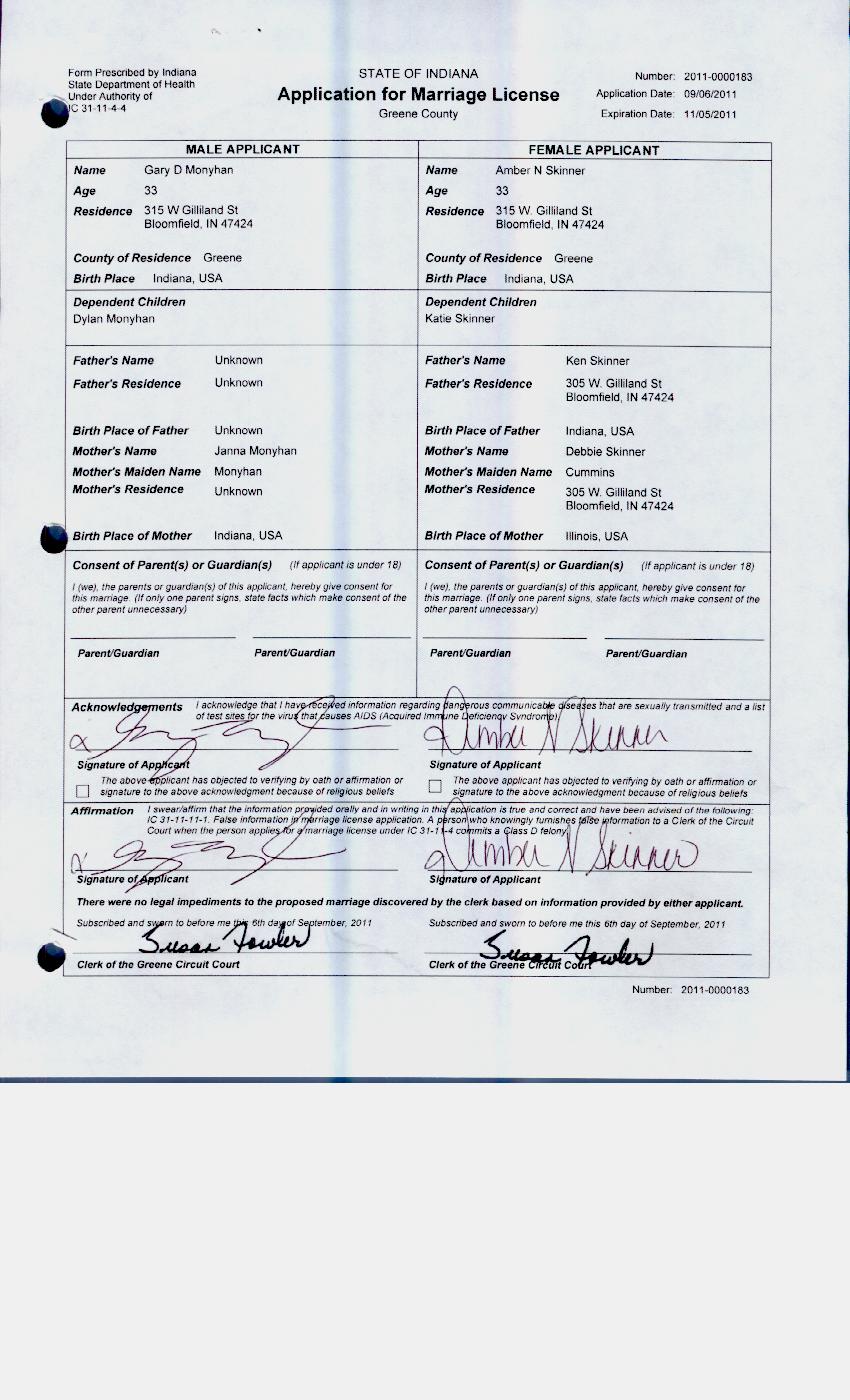 Form Prescribed by Indiana
State Department of Health
Under Authority of
IC 31-11-4-4
STATE OF INDIANA
Application for Marriage License
Greene County
Number: 2011-0000183
Application Date: 09/06/2011
Expiration Date: 11/05/2011
MALE APPLICANT
Name Gary D Monyhan
Age 33
Residence 315 W Gilliland St
Bloomfield, IN 47424
County of Residence Greene
Birth Place Indiana, USA
Dependent Children
Dylan Monyhan
Father's Name Unknown
Father's Residence Unknown
Birth Place of Father Unknown
Mother's Name Janna Monyhan
Mother's Maiden Name Monyhan
Mother's Residence Unknown
Birth Place of Mother Indiana, USA
Consent of Parent(s) or Guardian(s) (If applicant is under 18)
I (we), the parents or guardian(s) of this applicant, hereby give consent for
this marriage. (If only one parent signs, state facts which make consent of the
other parent unnecessary)
Parent/Guardian Parent/Guardian
FEMALE APPLICANT
Name Amber N Skinner
Age 33
Residence 315 W. Gilliland St
Bloomfield, IN 47424
County of Residence Greene
Birth Place Indiana, USA
Dependent Children
Katie Skinner
Father's Name Ken Skinner
Father's Residence 305 W. Gilliland St
Bloomfield, IN 47424
Birth Place of Father Indiana, USA
Mother's Name Debbie Skinner
Mother's Maiden Name Cummins
Mother's Residence 305 W. Gilliland St
Bloomfield, IN 47424
Birth Place of Mother Illinois, USA
Consent of Parent(s) or Guardian(s) (If applicant is under 18)
I (we), the parents or guardian(s) of this applicant, hereby give consent for
this marriage. (If only one parent signs, state facts which make consent of the
other parent unnecessary)
Parent/Guardian Parent/Guardian
Acknowledgements I acknowledge that I have received information regarding dangerous communicable diseases that are sexually transmitted and a list
of test sites for the virus that causes AIDS (Acquired Immune Deficiency Syndrome).
Amber N Skinner
Signature of Applicant Signature of Applicant
The above applicant has objected to verifying by oath or affirmation or
signature to the above acknowledgment because of religious beliefs
The above applicant has objected to verifying by oath or affirmation or
signature to the above acknowledgment because of religious beliefs
Affirmation I swear/affirm that the information provided orally and in writing in this application is true and correct and have been advised of the following:
IC 31-11-11-1. False information in marriage license application. A person who knowingly furnishes false information to a Clerk of the Circuit
Court when the person applies for a marriage license under IC 31-11-4 commits a Class D felony.
Amber N Skinner
Signature of Applicant Signature of Applicant
There were no legal impediments to the proposed marriage discovered by the clerk based on information provided by either applicant.
Subscribed and sworn to before me this 6th day of September, 2011 Subscribed and sworn to before me this 6th day of September, 2011
Susan Fowler Susan Fowler
Clerk of the Greene Circuit Court Clerk of the Greene Circuit Court
Number: 2011-0000183